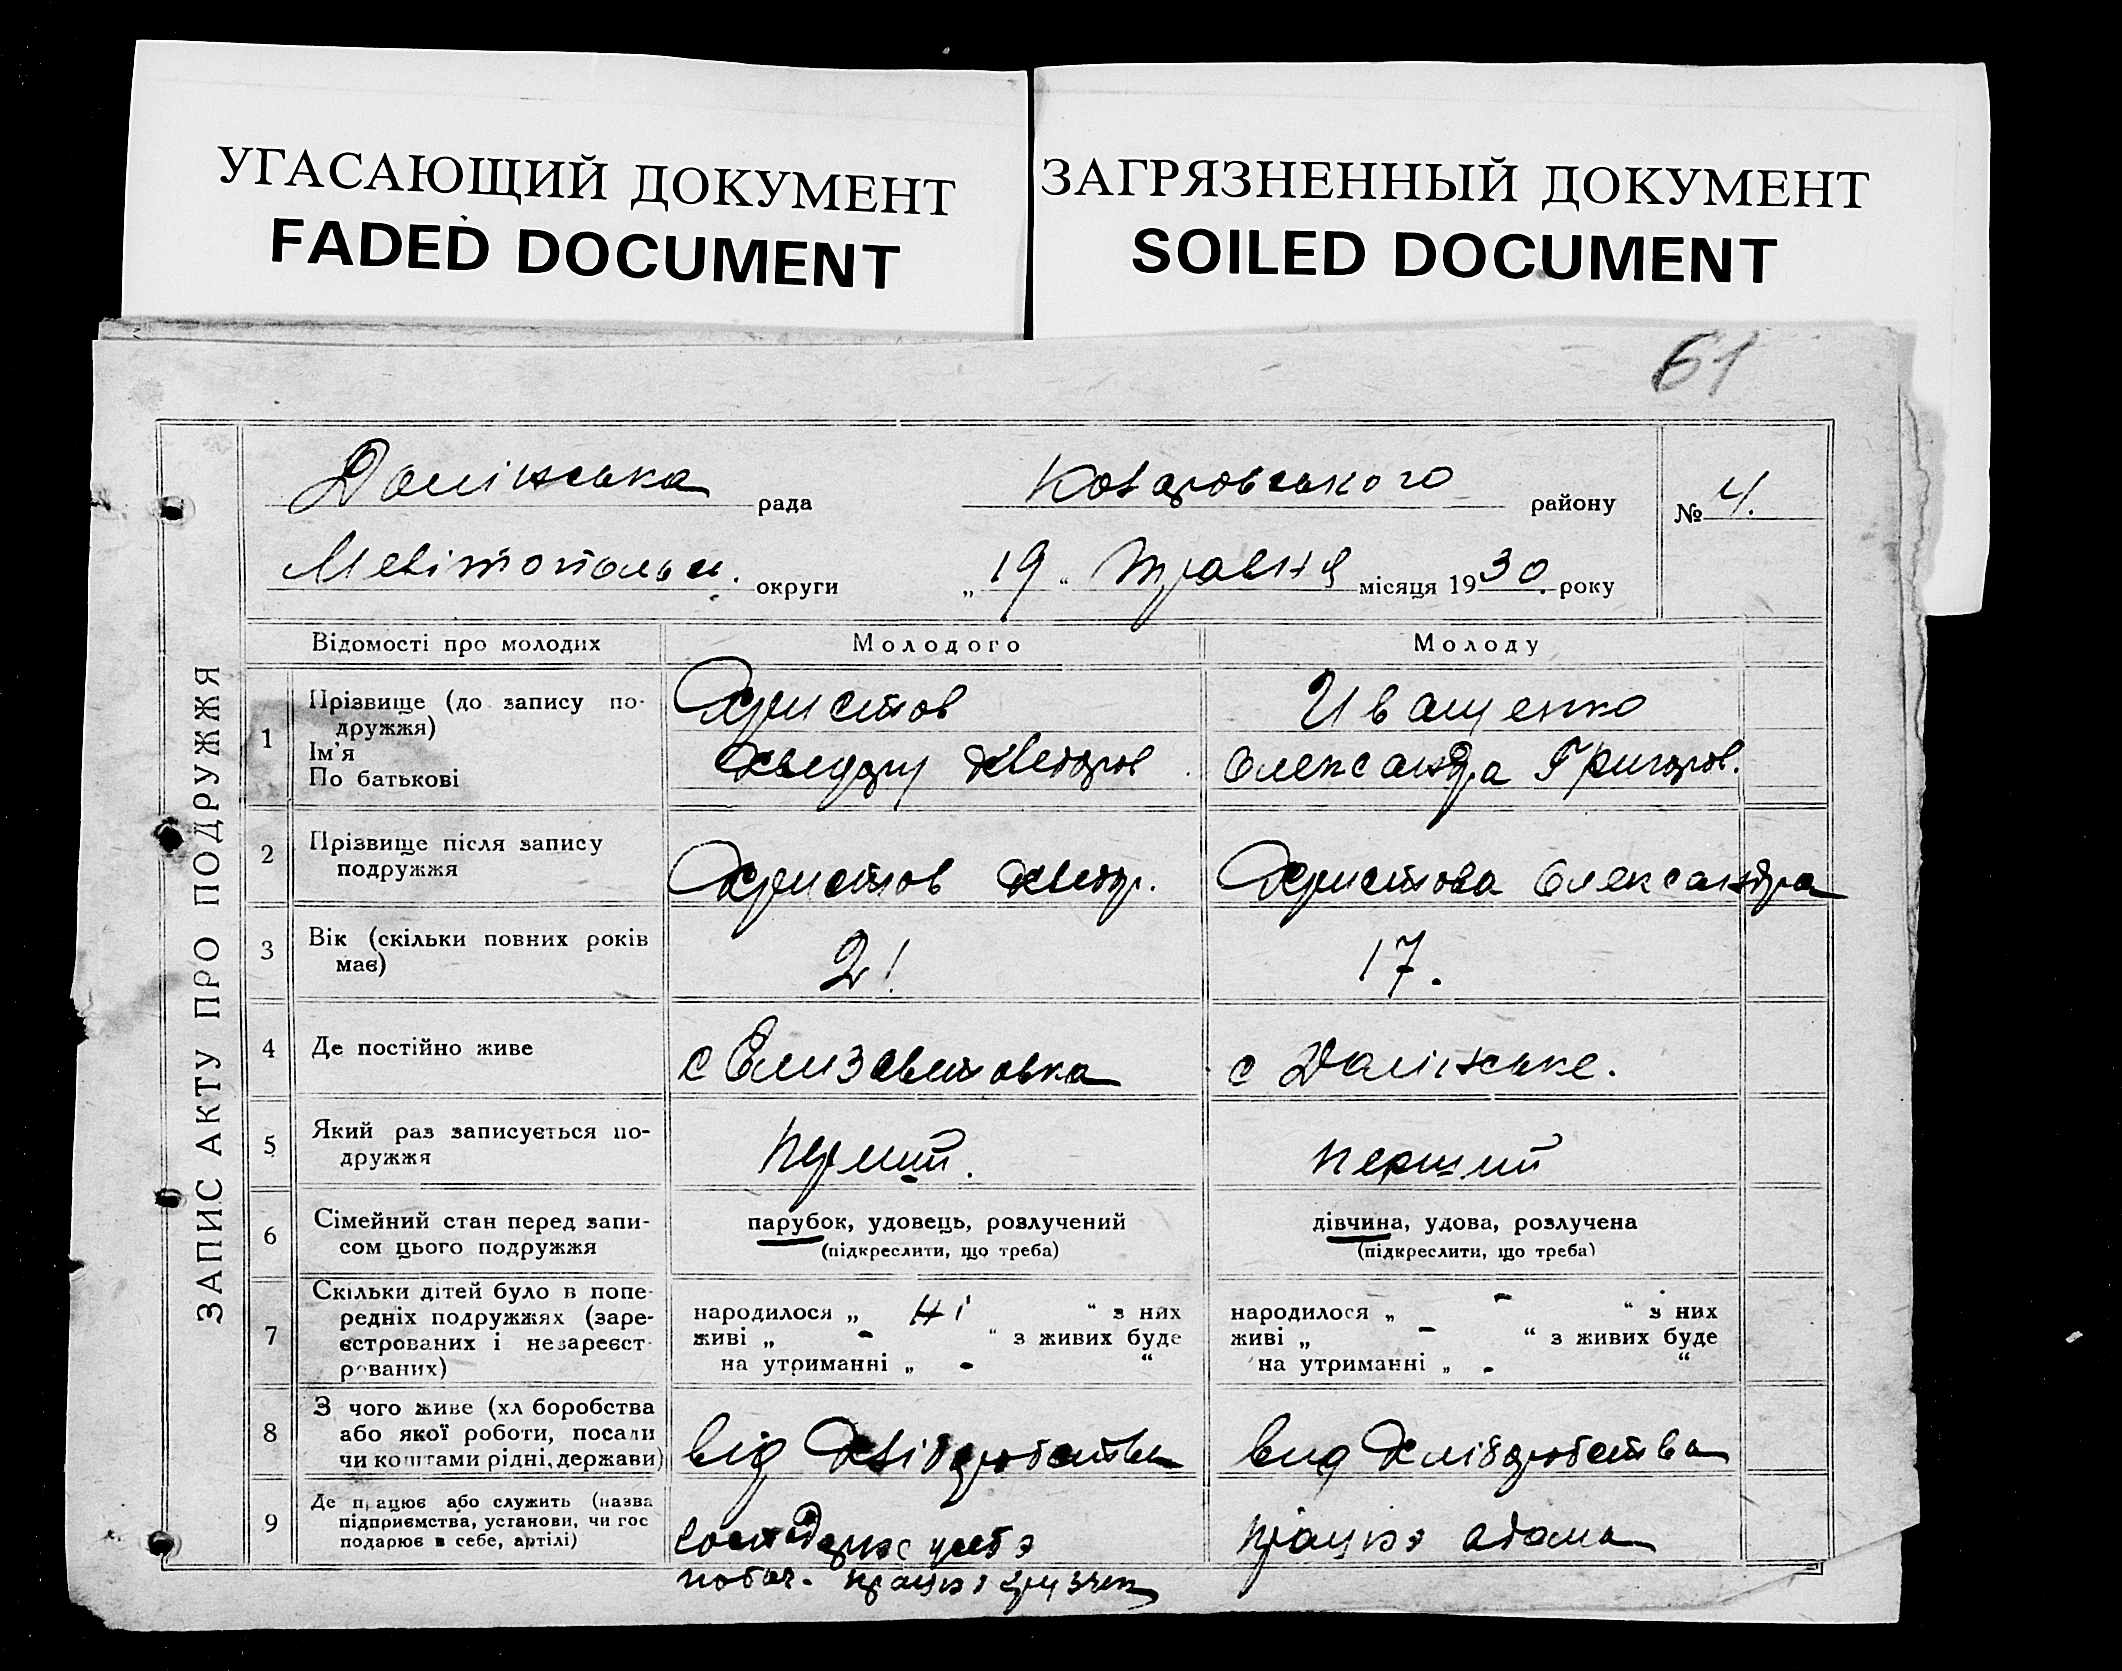 УГАСАЮЩИЙ ДОКУМЕНТ
FADED DOCUMENT
ЗАГРЯЗНЕННЫЙ ДОКУМЕНТ
SOILED DOCUMENT
61
ЗАПИС АКТУ ПРО ПОДРУЖЖЯ
Долінська рада
района
№ 4.
округи „ 19 “ травня місяця 1930. року
Відомості про молодих
Молодого
Молоду
1
Прізвище (до запису по-
дружжя)
Ім'я
По батькові
Христов
Иващенко
Олександра Григоров.
2
Прізвище після запису
подружжя
Христов
Христова Олександра
3
Вік (скільки повних років
має)
21
17.
4
Де постійно живе
с Елизаветовка
с Долінське.
5
Який раз записується по-
дружжя
перший.
перший
6
Сімейний стан перед запи-
сом цього подружжя
парубок, удовець, розлучений
(підкреслити, що треба)
дівчина, удова, розлучена
(підкреслити, що треба)
7
Скільки дітей було в попе-
редніх подружжях (заре-
єстрованих і незареєст-
рованих)
народилося „ ні “ з них
живі „ - “ з живих буде
на утриманні „ - “
народилося „ - “ з них
живі „ - “ з живих буде
на утриманні „ - “
8
З чого живе (хліборобства
або якої роботи, посади
чи коштами рідні, держави)
від
вид хліборобства
9
Де працює або служить (назва
підприємства, установи, чи гос
подарює в себе, артілі)